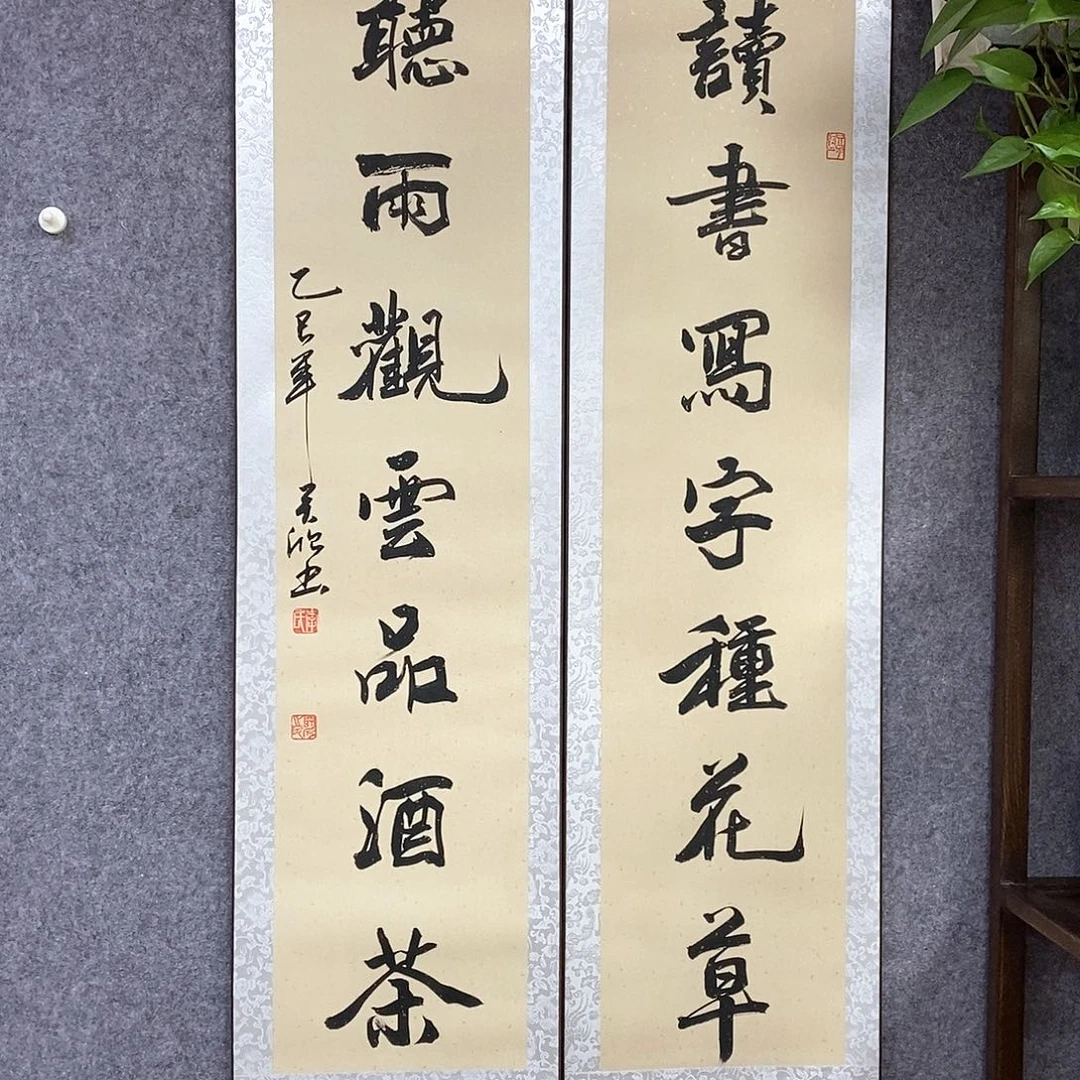 讀書寫字種花草
聽雨觀雲品酒茶
乙巳年
书